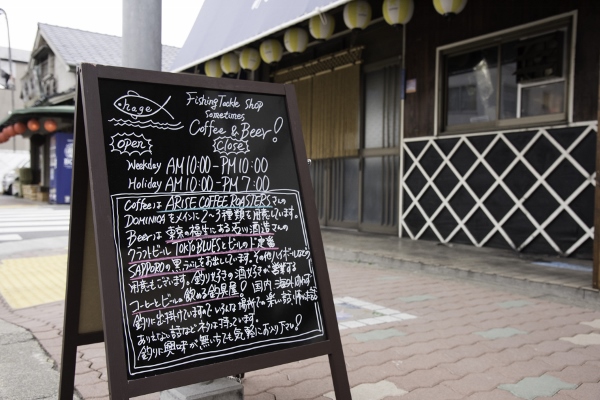 hage
Fishing Tackle Shop
sometimes
Coffee & Beer!
open
close
Weekday AM10:00-PM10:00
Holiday AM10:00-PM7:00
Coffeeは ARISE COFFEE ROASTERSさんの
DOMINICAをメインに2~3種類を用意しています。
Beerは東京の福生にある石川酒造さんの
クラフトビール TOKYO BLUESとビールの定番
SAPPOROの黒ラベルをお出ししています。その他ハイボールなども
用意もございます。釣り好きの酒好きが営業する
コーヒーとビールの飲める釣具屋! 国内海外問わず
釣りに出掛けていますのでいろんな場所での楽しい話
ありえない話などネタは持っています。
釣りに興味が無い方でも気軽にお入り下さい!